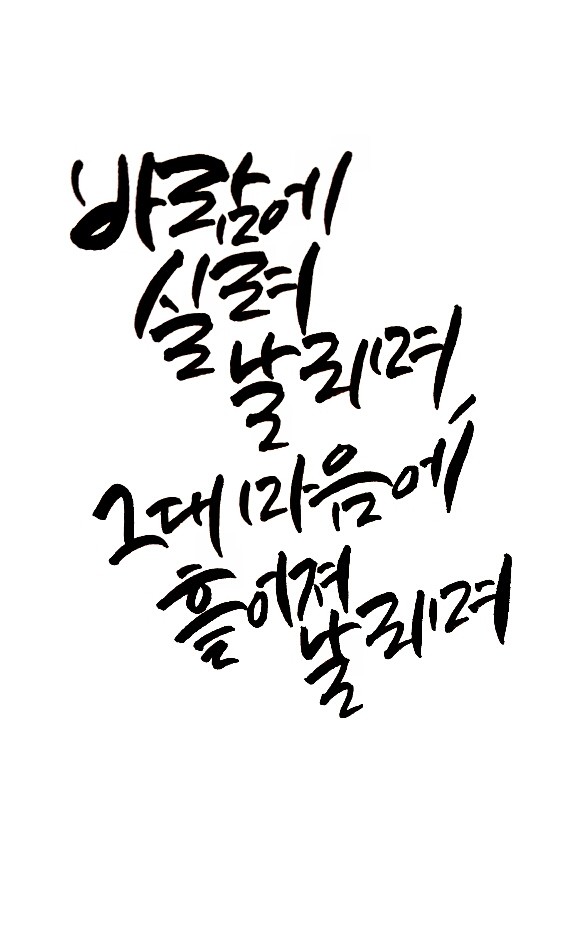 바람에
실려
날리며,
그대 마음에
흩어져
날리며